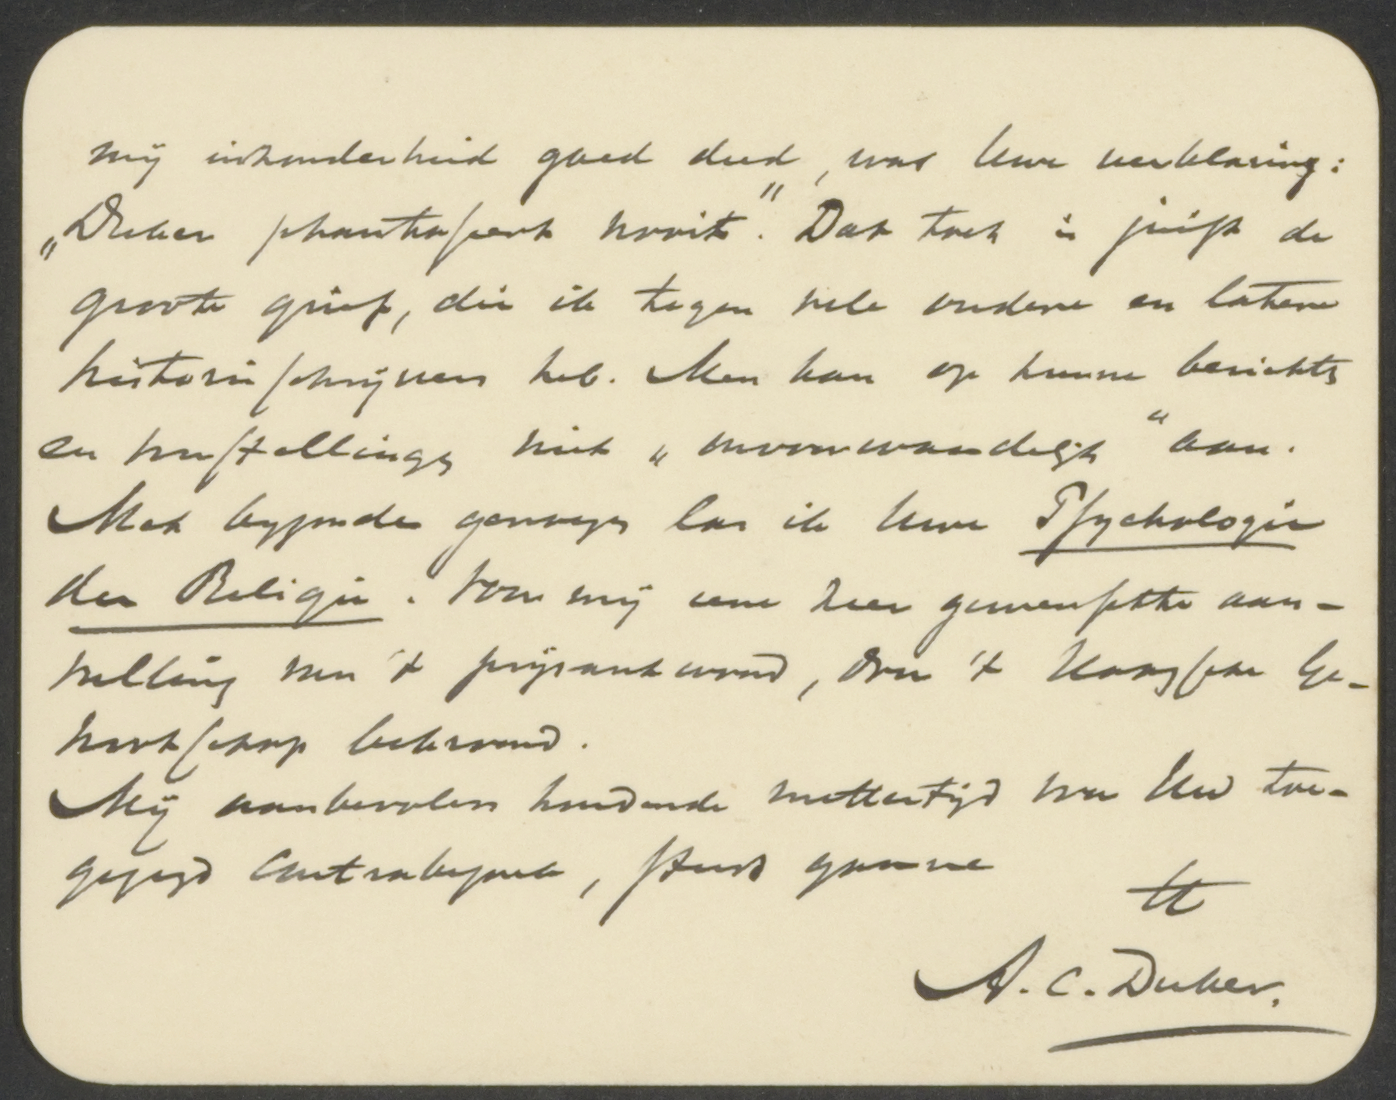 mij inzonderheid goed deed, was Uwe verklaring:
„Duker phantaseert nooit”. Dat toch is juist de
groote grief, die ik tegen vele oudere en latere
historieschrijvers heb. Men kan op hunne berichten
en voorstellingen niet „onvoorwaardelijk“ aan.
Met bijzonder genoegen las ik Uwe Psychologie
der Religie. Voor mij eene zeer gewenschte aan-
vulling van 't prijsantwoord, door 't Haagsche Ge-
nootschap bekroond.
Mij aanbevolen houdende mettertijd voor Uw toe-
gezegd contrabezoek, steeds gaarne
tt
A. C. Duker.